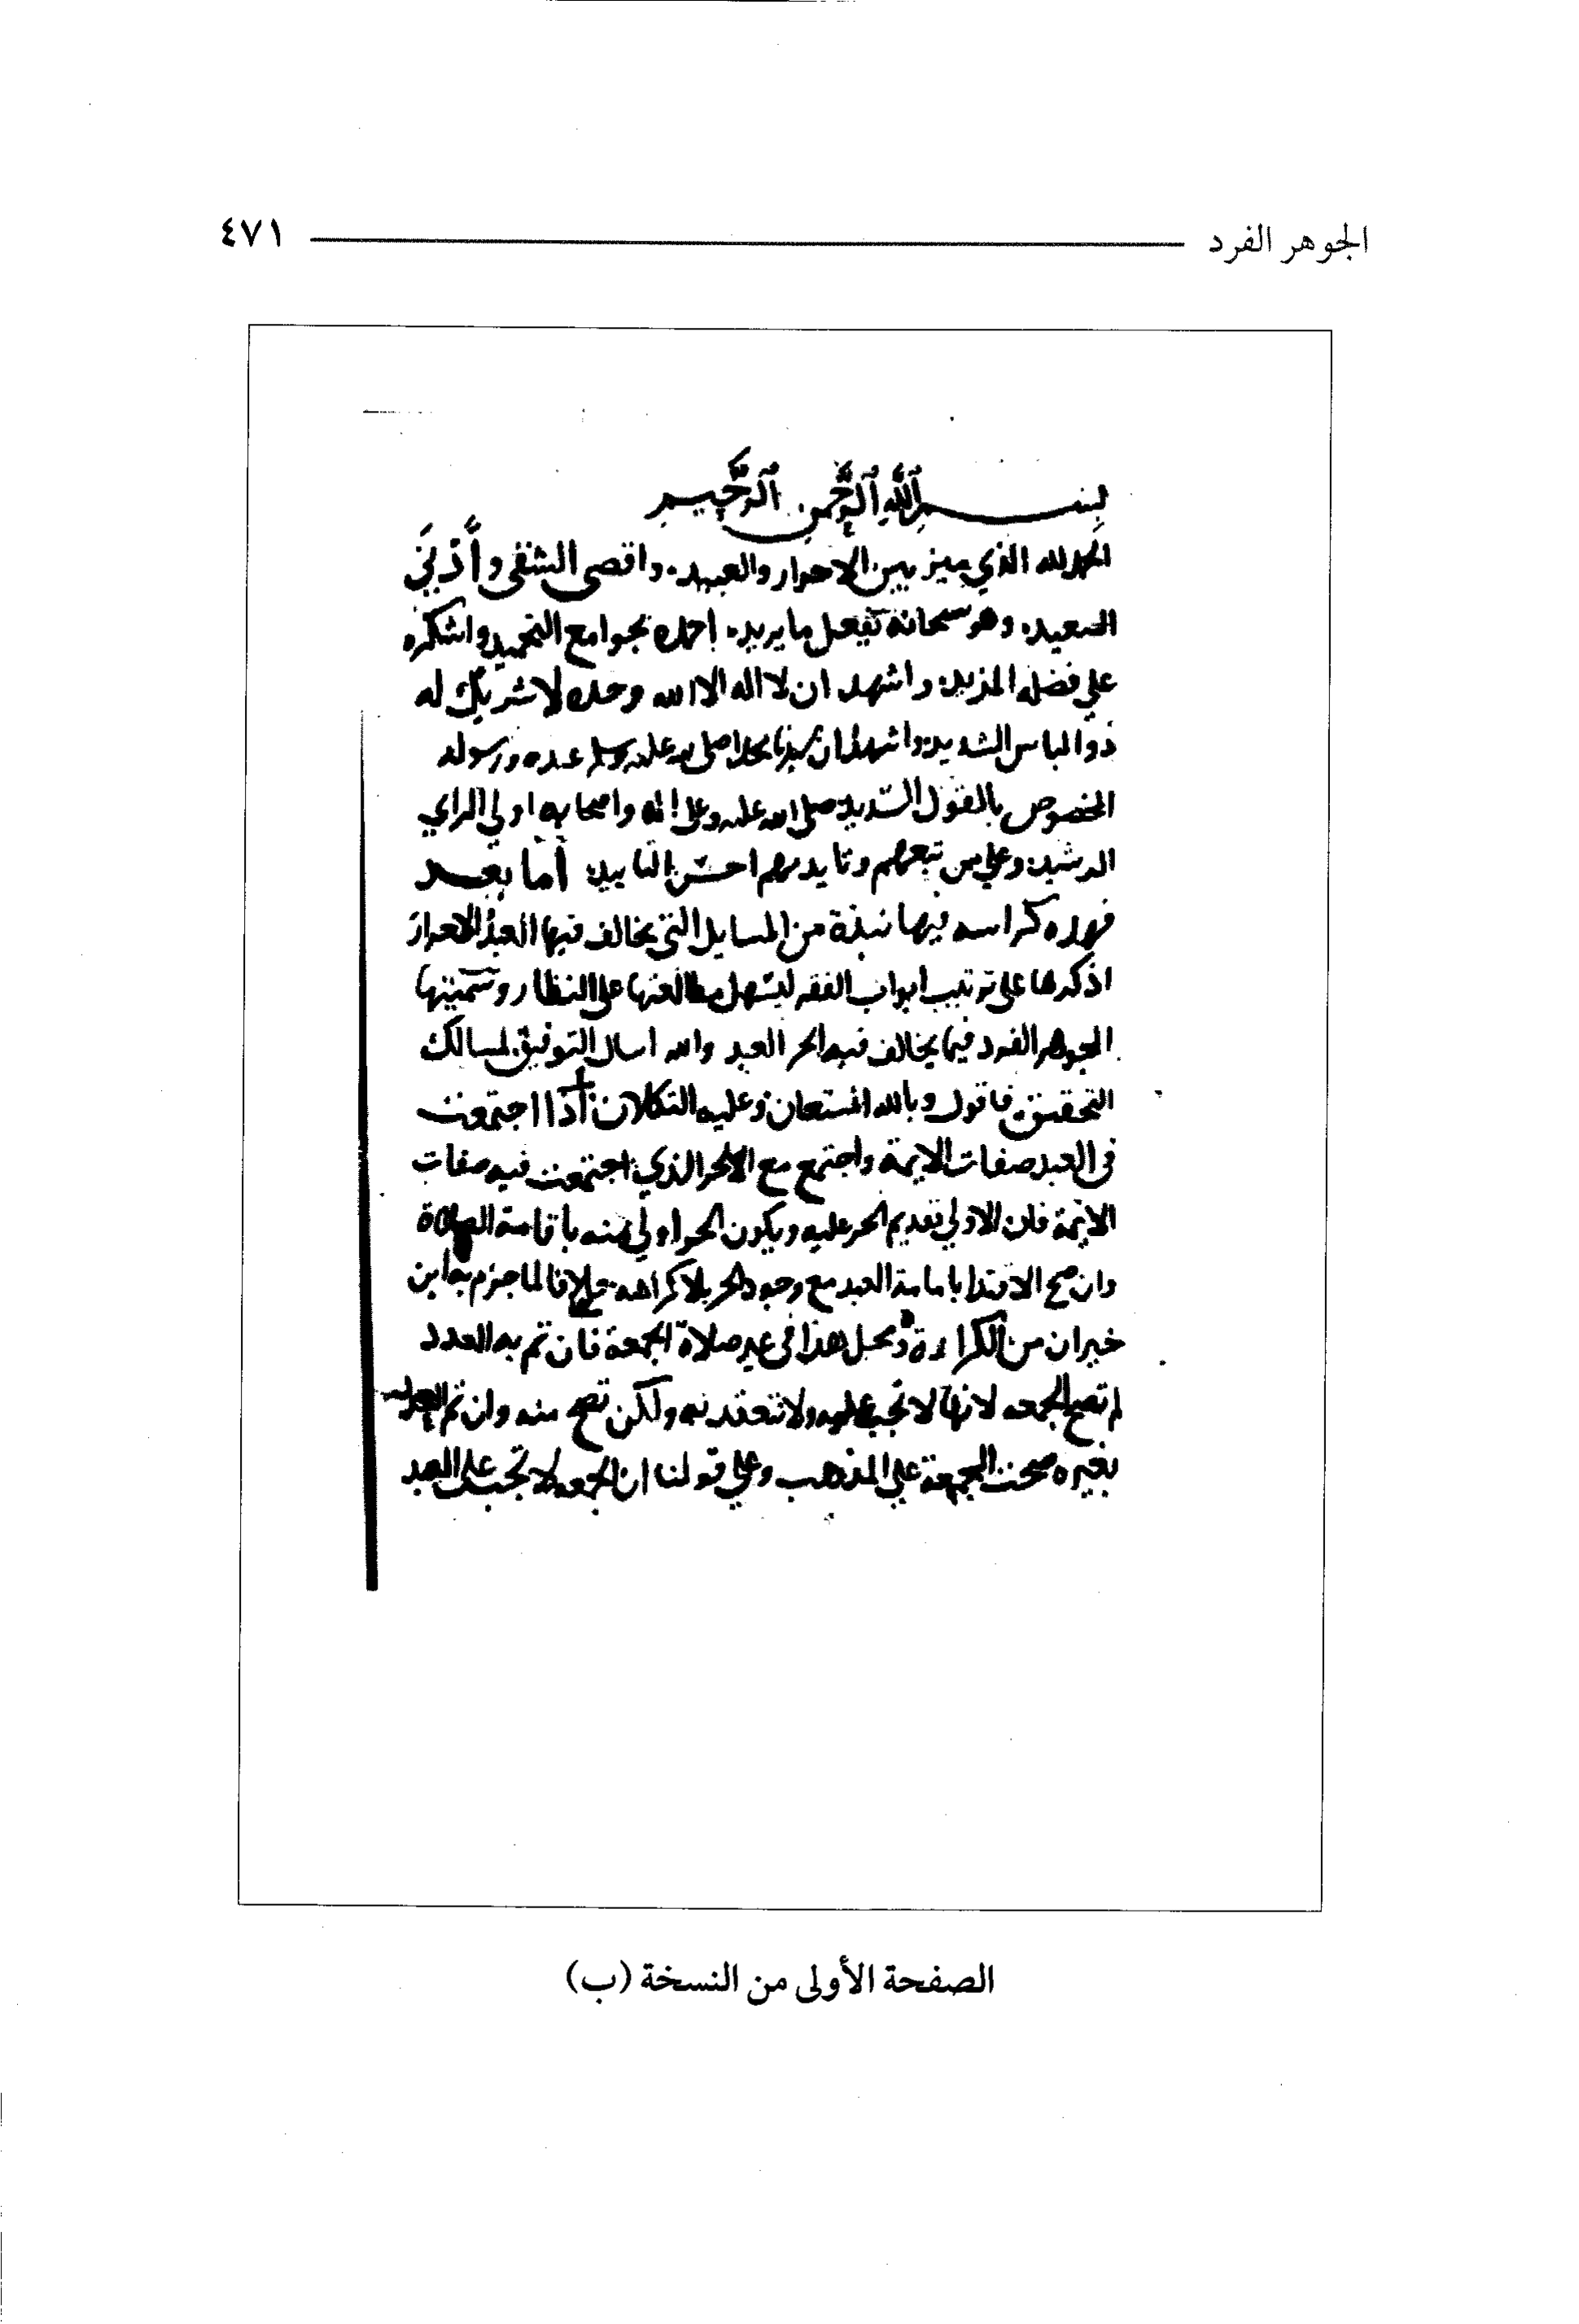 الجوهر الفرد ٤٧١
بسم الله الرحمن الرحيم
الحمد لله الذي ميز بين الاحرار والعبيد. واقصى الشقي وأدنى
السعيد. وهو سبحانه يفعل ما يريد. احمده بجوامع التحميد واشكره
على فضله المزيد. واشهد ان لا اله الا الله وحده لا شريك له
ذو الباس الشديد واشهد ان سيدنا محمدا صلى الله عليه وسلم عبده ورسوله
المخصوص بالقول السديد صلى الله عليه وعلى اله واصحابه اولي الراي
الرشيد وعلى من تبعهم احسن التاييد أما بعد
فهذه كراسه فيها نبذة من المسايل التي يخالف فيها العبد الاحرار
اذكرها على ترتيب ابواب الفقه ليسهل مطالعتها على النظار وسميتها
الجوهر الفرد فيما يخالف فيه الحر العبد والله اسال التوفيق لمسالك
التحقيق فاقول وبالله المستعان وعليه التكلان اذا اجتمعت
في العبد صفات الايمة واجتمع مع الحر الذي اجتمعت فيه صفات
الايمة فان الاولى تقديم الحر عليه ويكون الحر اولى منه باقامة الصلاة
وان صح الاقتدا بامامة العبد مع وجود الحر بلا كراهه خلافا لما جزم به ابن
خيران من الكراهة ومحل هذا في غير صلاة الجمعة فان تم به العدد
لم تصح الجمعه لانها لا تجب عليه ولا تنعقد به ولكن تصح منه وان تم العدد
بغيره صحت الجمعة على المذهب وعلى قولنا ان الجمعه لا تجب على العبد
الصفحة الأولى من النسخة (ب)